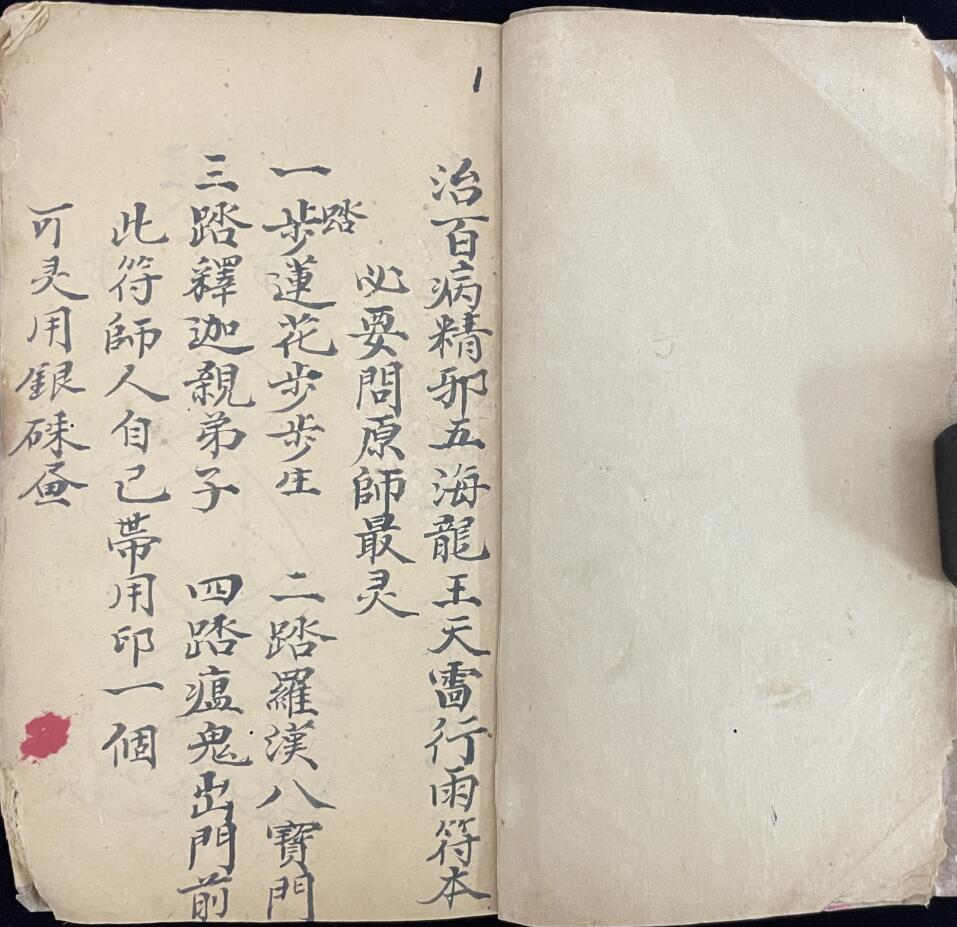 1
治百病精邪五海龍王天雷行雨符本
必要問原師最灵
一踏步蓮花步步生 二踏羅漢八寶門
三踏釋迦親弟子 四踏瘟鬼出門前
此符師人自己帶用印一個
可灵用銀硃